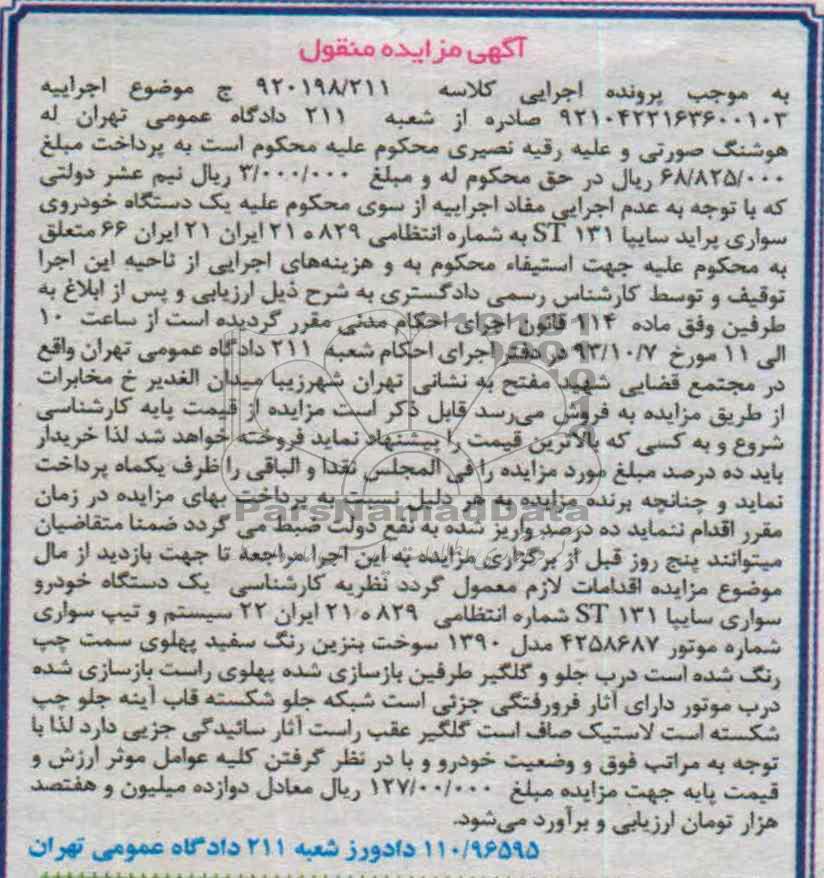 آگهی مزایده منقول
به موجب پرونده اجرایی کلاسه ۹۲۰۱۹۸/۲۱۱ ج موضوع اجراییه
۹۲۱۰۴۲۲۱۶۳۶۰۰۱۰۳ صادره از شعبه ۲۱۱ دادگاه عمومی تهران له
هوشنگ صورتی و علیه رقیه نصیری محکوم علیه محکوم است به پرداخت مبلغ
۶۸/۸۲۵/۰۰۰ ریال در حق محکوم له و مبلغ ۳/۰۰۰/۰۰۰ ریال نیم عشر دولتی
که با توجه به عدم اجرایی مفاد اجراییه از سوی محکوم علیه یک دستگاه خودروی
سواری پراید سایپا ۱۳۱ ST به شماره انتظامی ۸۲۹ ه ۲۱ ایران ۲۱ ایران ۶۶ متعلق
به محکوم علیه جهت استیفاء محکوم به و هزینه‌های اجرایی از ناحیه این اجرا
توقیف و توسط کارشناس رسمی دادگستری به شرح ذیل ارزیابی و پس از ابلاغ به
طرفین وفق ماده ۱۱۴ قانون اجرای احکام مدنی مقرر گردیده است از ساعت ۱۰
الی ۱۱ مورخ ۹۳/۱۰/۷ در دفتر اجرای احکام شعبه ۲۱۱ دادگاه عمومی تهران واقع
در مجتمع قضایی شهید مفتح به نشانی تهران شهرزیبا میدان الغدیر خ مخابرات
از طریق مزایده به فروش می‌رسد قابل ذکر است مزایده از قیمت پایه کارشناسی
شروع و به کسی که بالاترین قیمت را پیشنهاد نماید فروخته خواهد شد لذا خریدار
باید ده درصد مبلغ مورد مزایده را فی المجلس نقدا و الباقی را ظرف یکماه پرداخت
نماید و چنانچه برنده مزایده به هر دلیل نسبت به پرداخت بهای مزایده در زمان
مقرر اقدام ننماید ده درصد واریز شده به نفع دولت ضبط می گردد ضمنا متقاضیان
میتوانند پنج روز قبل از برگزاری مزایده به این اجرا مراجعه تا جهت بازدید از مال
موضوع مزایده اقدامات لازم معمول گردد نظریه کارشناسی یک دستگاه خودرو
سواری سایپا ۱۳۱ ST شماره انتظامی ۸۲۹ ه ۲۱ ایران ۲۲ سیستم و تیپ سواری
شماره موتور ۴۲۵۸۶۸۷ مدل ۱۳۹۰ سوخت بنزین رنگ سفید پهلوی سمت چپ
رنگ شده است درب جلو و گلگیر طرفین بازسازی شده پهلوی راست بازسازی شده
درب موتور دارای آثار فرورفتگی جزئی است شبکه جلو شکسته قاب آینه جلو چپ
شکسته است لاستیک صاف است گلگیر عقب راست آثار سائیدگی جزیی دارد لذا با
توجه به مراتب فوق و وضعیت خودرو و با در نظر گرفتن کلیه عوامل موثر ارزش و
قیمت پایه جهت مزایده مبلغ ۱۲۷/۰۰/۰۰۰ ریال معادل دوازده میلیون و هفتصد
هزار تومان ارزیابی و برآورد می‌شود.
۱۱۰/۹۶۵۹۵ دادورز شعبه ۲۱۱ دادگاه عمومی تهران
ParsNamadData